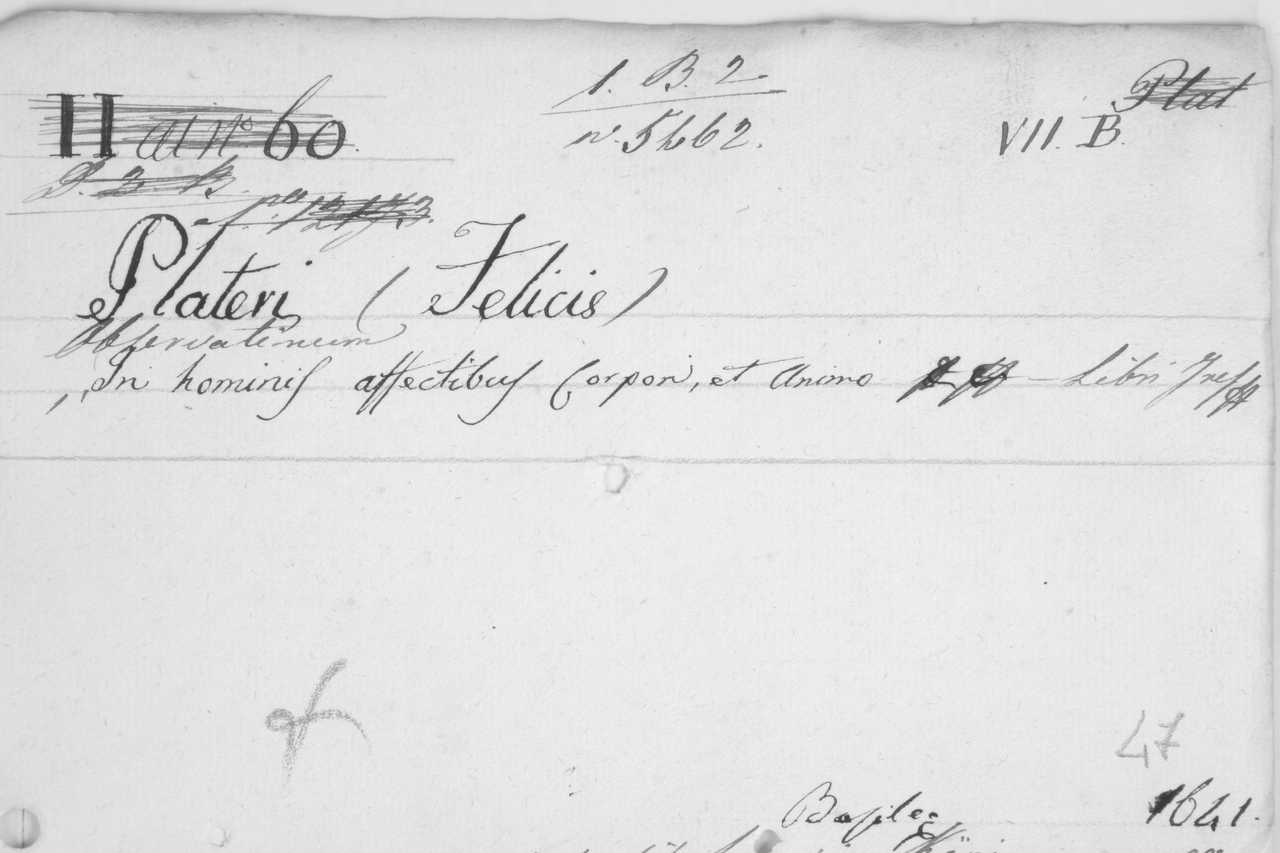 1. B. 2
Plat
II au n° 60.
n. 5662.
VII. B.
D. 3. B.
Plateri (Felicis)
Observationum
In hominis affectibus Corpori, et Animo — Libri Tres
47
Basileę 1641.